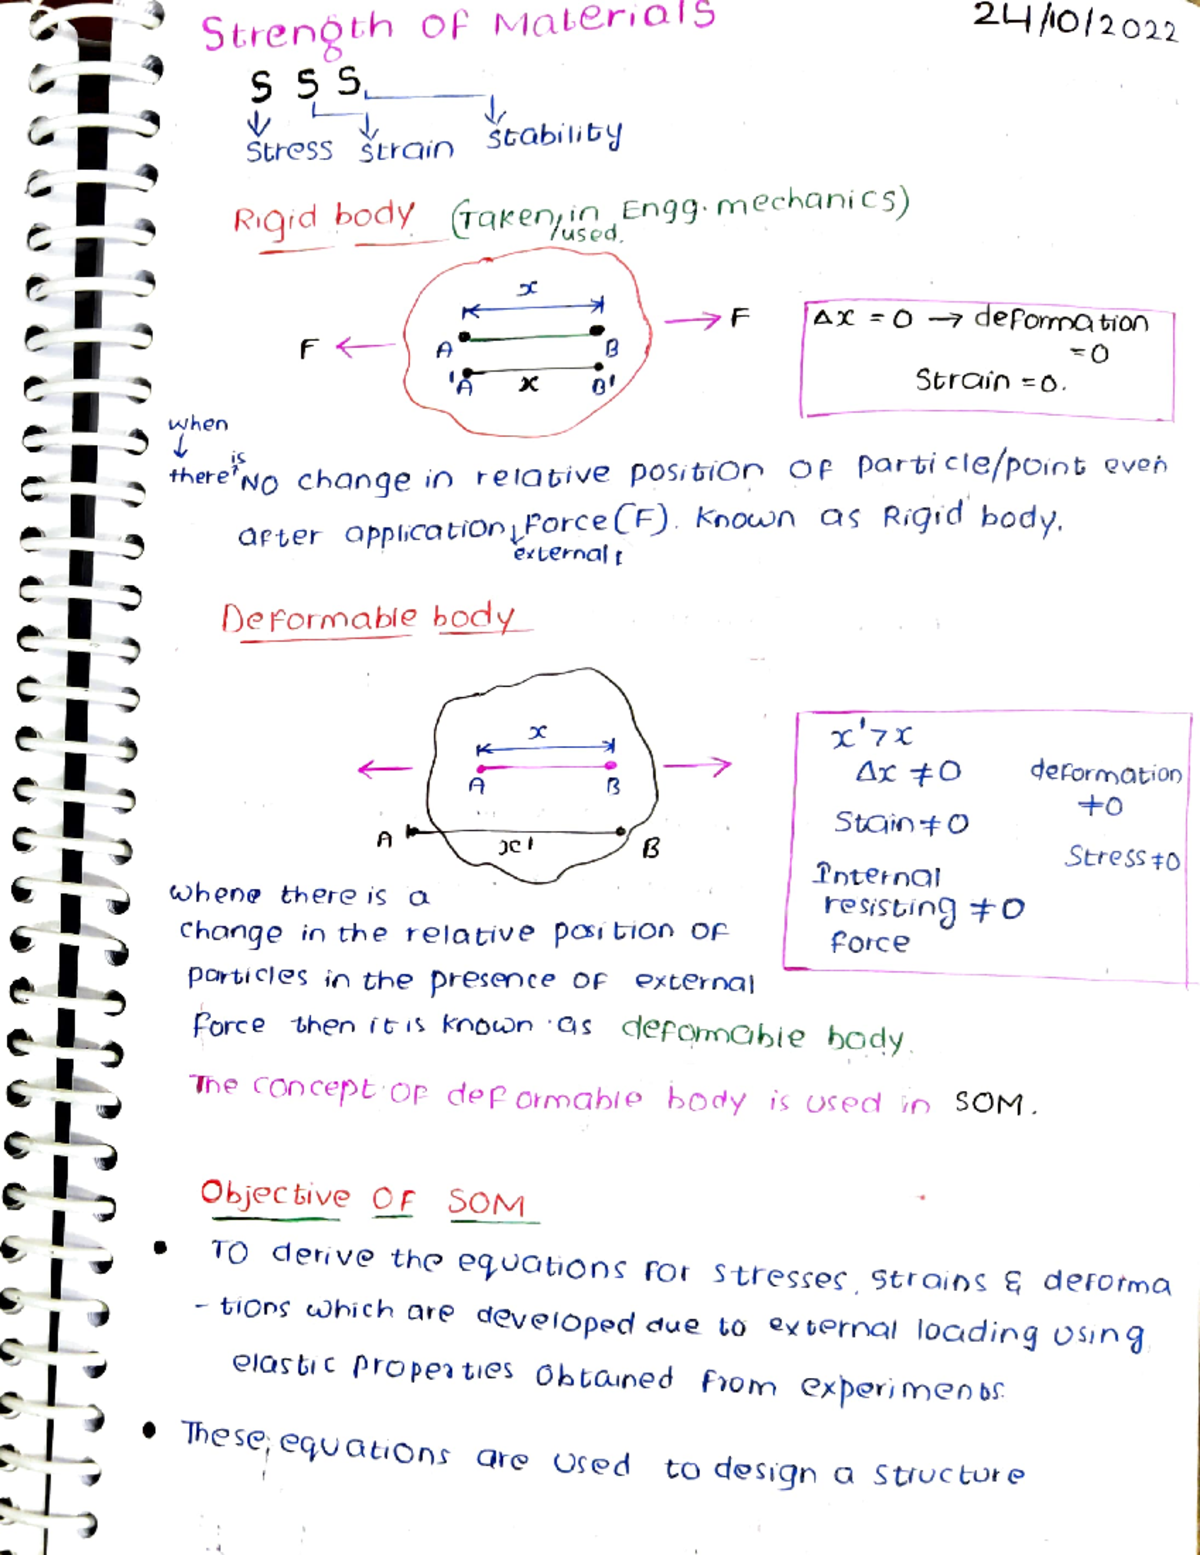 Strength OF Materials
24/10/2022
S S S
Stress Strain Stability
Rigid body (Taken/used in Engg. mechanics)
x
F F
A B
'A x B'
Δx = 0 → deformation
= 0
Strain = 0.
when
there is NO change in relative position OF particle/point even
after application external Force (F). Known as Rigid body.
Deformable body
x
A B
A x' B
x' > x
Δx ≠ 0 deformation
≠ 0
Stain ≠ 0
Stress ≠ 0
Internal
resisting ≠ 0
force
whene there is a
change in the relative position OF
particles in the presence OF external
force then it is known as deformable body.
The concept OF deformable body is used in SOM.
Objective OF SOM
• TO derive the equations for stresses, strains & deforma
- tions which are developed due to external loading using
elastic properties obtained from experiments.
• These, equations are used to design a structure